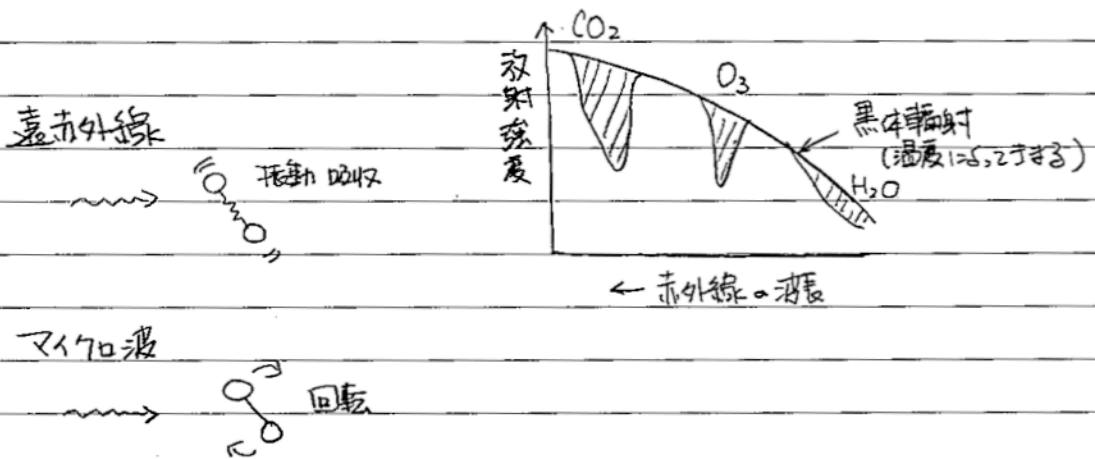 遠赤外線
振動吸収
マイクロ波
回転
放射強度
CO₂
O₃
黒体輻射
(温度によってきまる)
H₂O
← 赤外線の波長